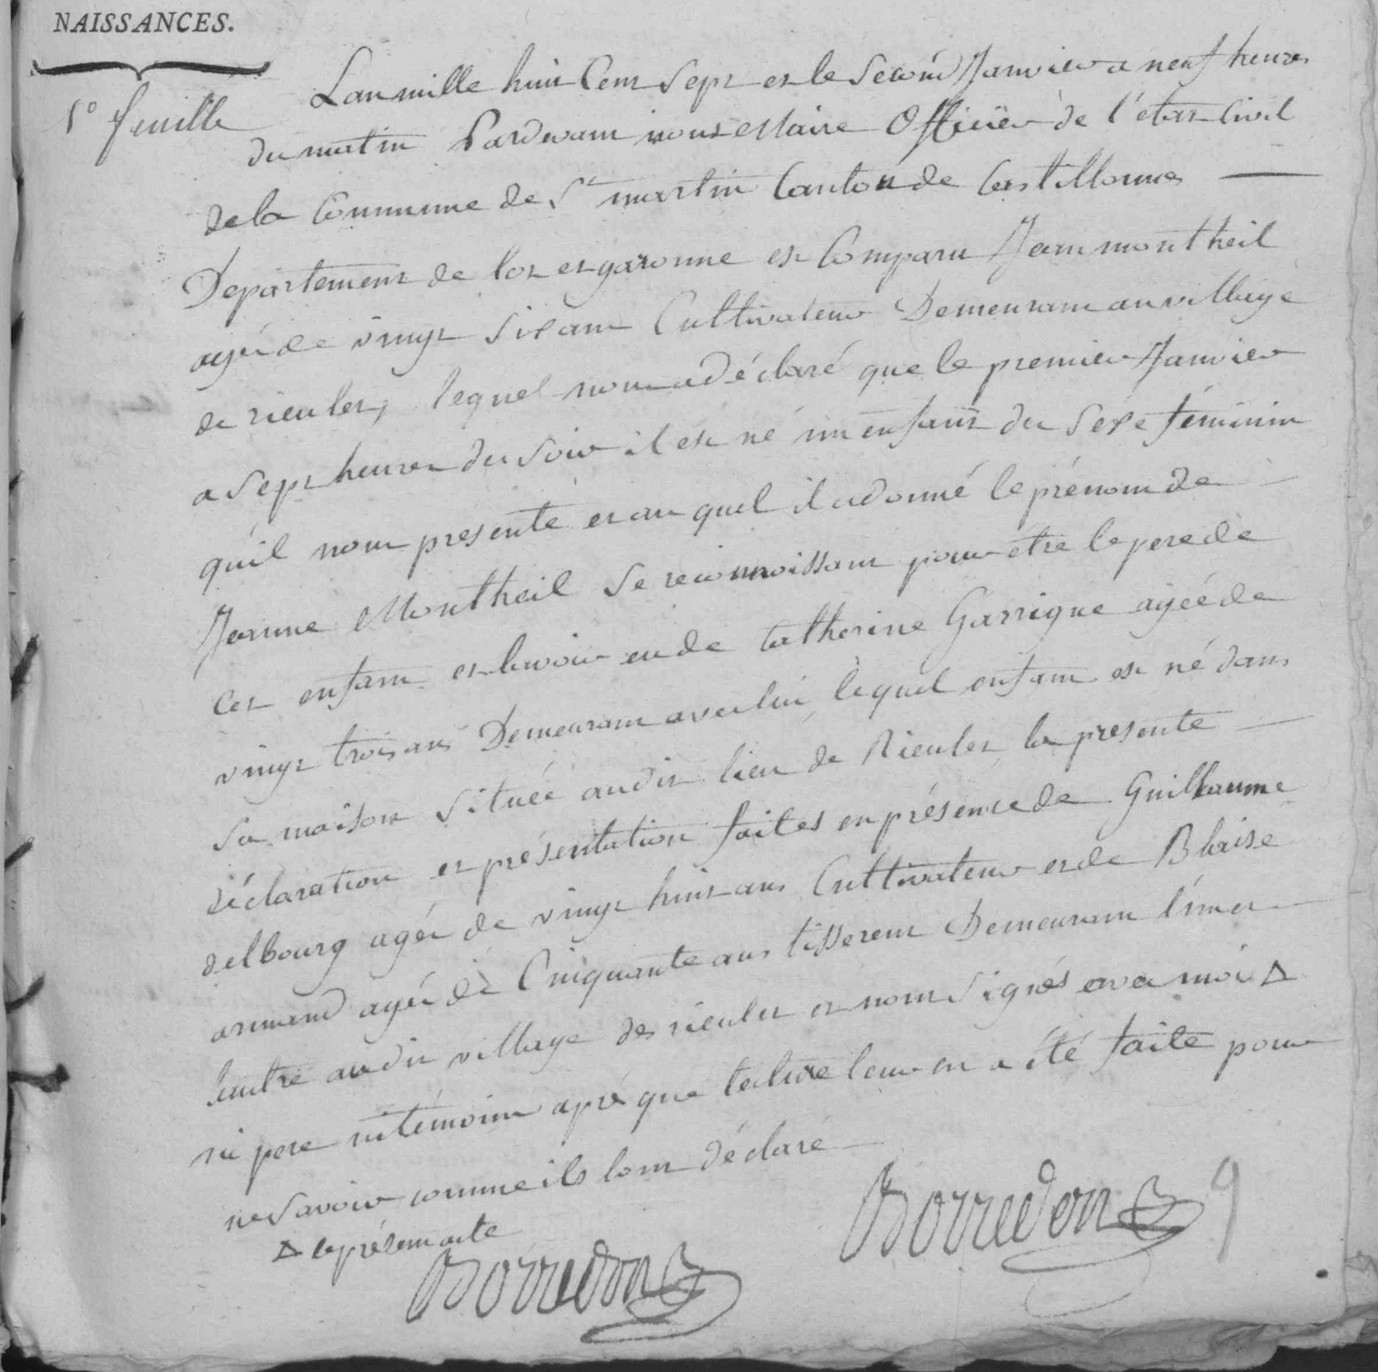 NAISSANCES.
1º feuille
L'an mille huit Cent Sept et le Second Janvier a neuf heures
du matin Pardevant nous Maire Officier de l'état Civil
de la Commune de St martin Canton de Castillonnes
Departement de lot et garonne est Comparu Jean montheil
agée de vingt Six ans Cultivateur Demeurant au village
de rieulet, lequel nous a déclaré que le premier Janvier
a Sept heures du Soir il est né un enfant du Sexe féminin
qu'il nous presente et au quel il a donné le prénom de
Jeanne Montheil Se reconnoissant pour être le pere de
cet enfant et lavoir eu de Catherine Garrigue agée de
vingt trois ans Demeurant avec lui, lequel enfant est né dans
Sa maison Situeé audit lieu de Rieulet la presente
déclaration et présentation faites en présence de Guillaume
delbourg agée de vingt huit ans Cultivateur et de Blaise
armand agée de Cinquante ans tisserent Demeurant l'un et
lautre audit village de rieulet et nont Signés avec moi Δ
ni pere ni témoins après que lecture leur en a été faite pour
ne Savoir comme ils lont déclaré
Δ le présent acte
Borredon Borredon
9